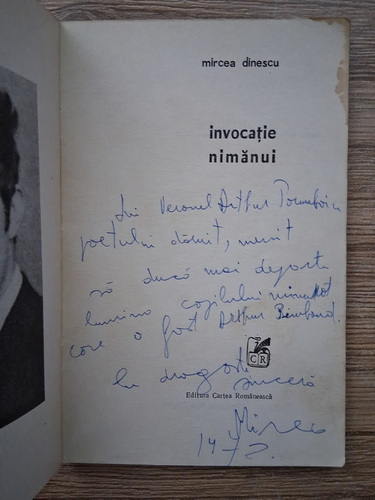 mircea dinescu
invocație
nimănui
Lui Veronel Arthur
poetului dăruit, menit
să ducă mai departe
lumina copilului minunat
care a fost Arthur Rimbaud.
Cu dragoste
sinceră
CR
Editura Cartea Românească
Mircea